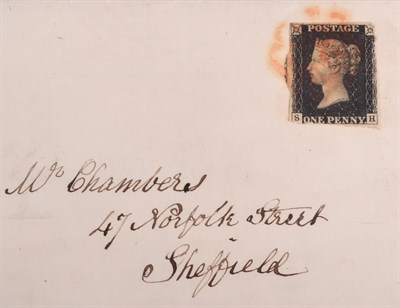 POSTAGE
S ONE PENNY H
Mr Chambers
47 Norfolk Street
Sheffield